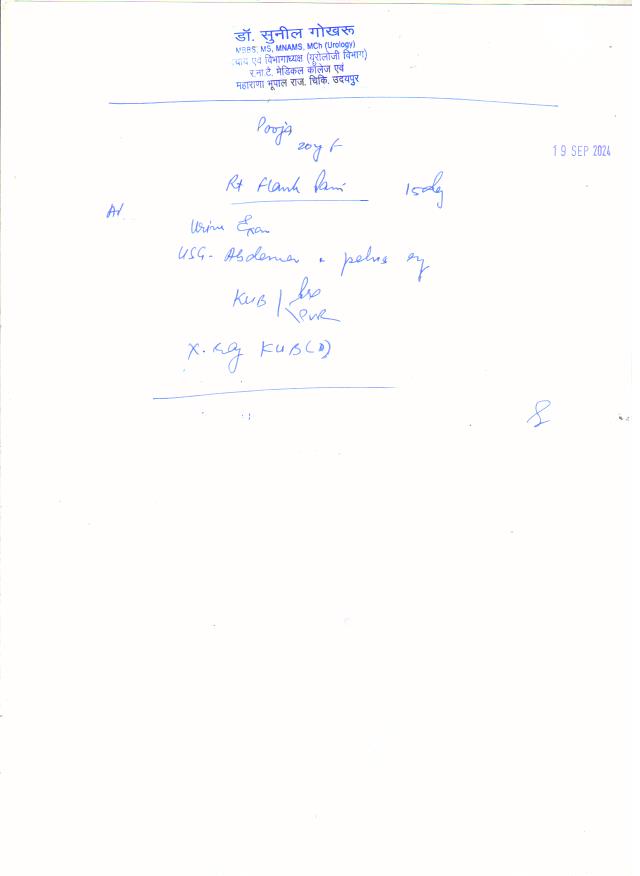 डॉ. सुनील गोखरू
MBBS, MS, MNAMS, MCh (Urology)
एवं विभागाध्यक्ष (यूरोलोजी विभाग)
र.ना.टै. मेडिकल कॉलेज एवं
महाराणा भूपाल राज. चिकि. उदयपुर
Pooja
20y F
19 SEP 2024
Rt Flank Pain 15day
Adv
Urine Exam
USG- Abdomen pelvis
KUB
PVR
X-ray KUB